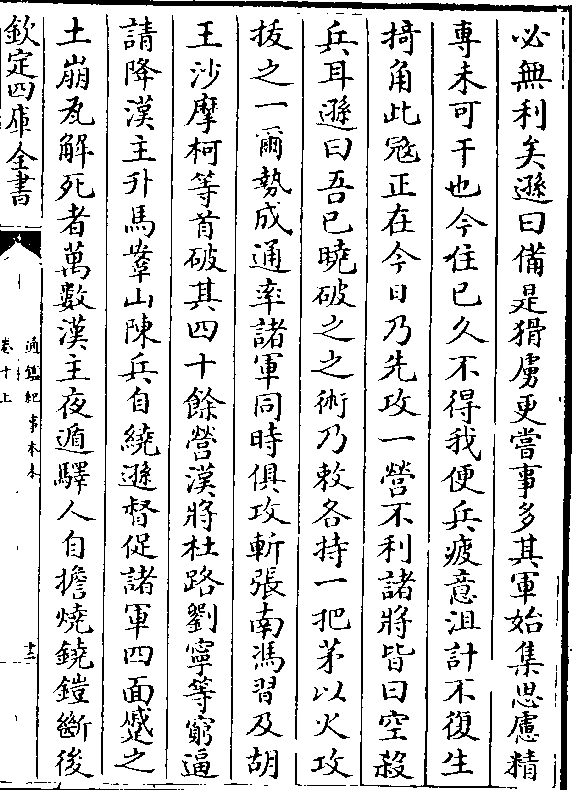 必無利矣遜曰備是猾虜更嘗事多其軍始集思慮精
專未可干也今住已久不得我便兵疲意沮計不復生
掎角此寇正在今日乃先攻一營不利諸將皆曰空殺
兵耳遜曰吾已曉破之之術乃敕各持一把茅以火攻
拔之一爾勢成通率諸軍同時俱攻斬張南馮習及胡
王沙摩柯等首破其四十餘營漢將杜路劉寧等窮逼
請降漢主升馬鞍山陳兵自繞遜督促諸軍四面蹙之
土崩瓦解死者萬數漢主夜遁驛人自擔燒鐃鎧斷後
欽定四庫全書
通鑑紀事本末
卷十上
十二